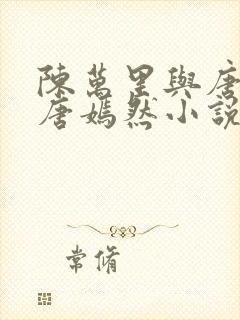 陳萬里與唐
唐嫣然小說
常脩